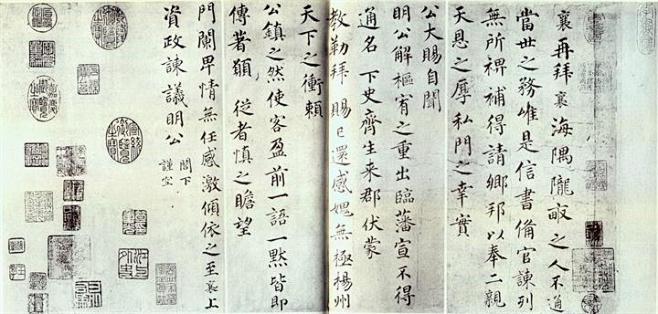 襄再拜襄海隅隴畝之人不通
當世之務唯是信書備官諫列
無所裨補得請鄉邦以奉二親
天恩之厚私門之幸實
公大賜自聞
明公解樞宥之重出臨藩宣不得
通名 下史齊生来郡伏蒙
教勒拜 賜已還感媿無極楊州
天下之衝賴
公鎮之然使客盈前一語一默皆即
傳著願 從者慎之瞻望
門闌卑情無任感激傾依之至襄上
資政諫議明公 閤下
謹空